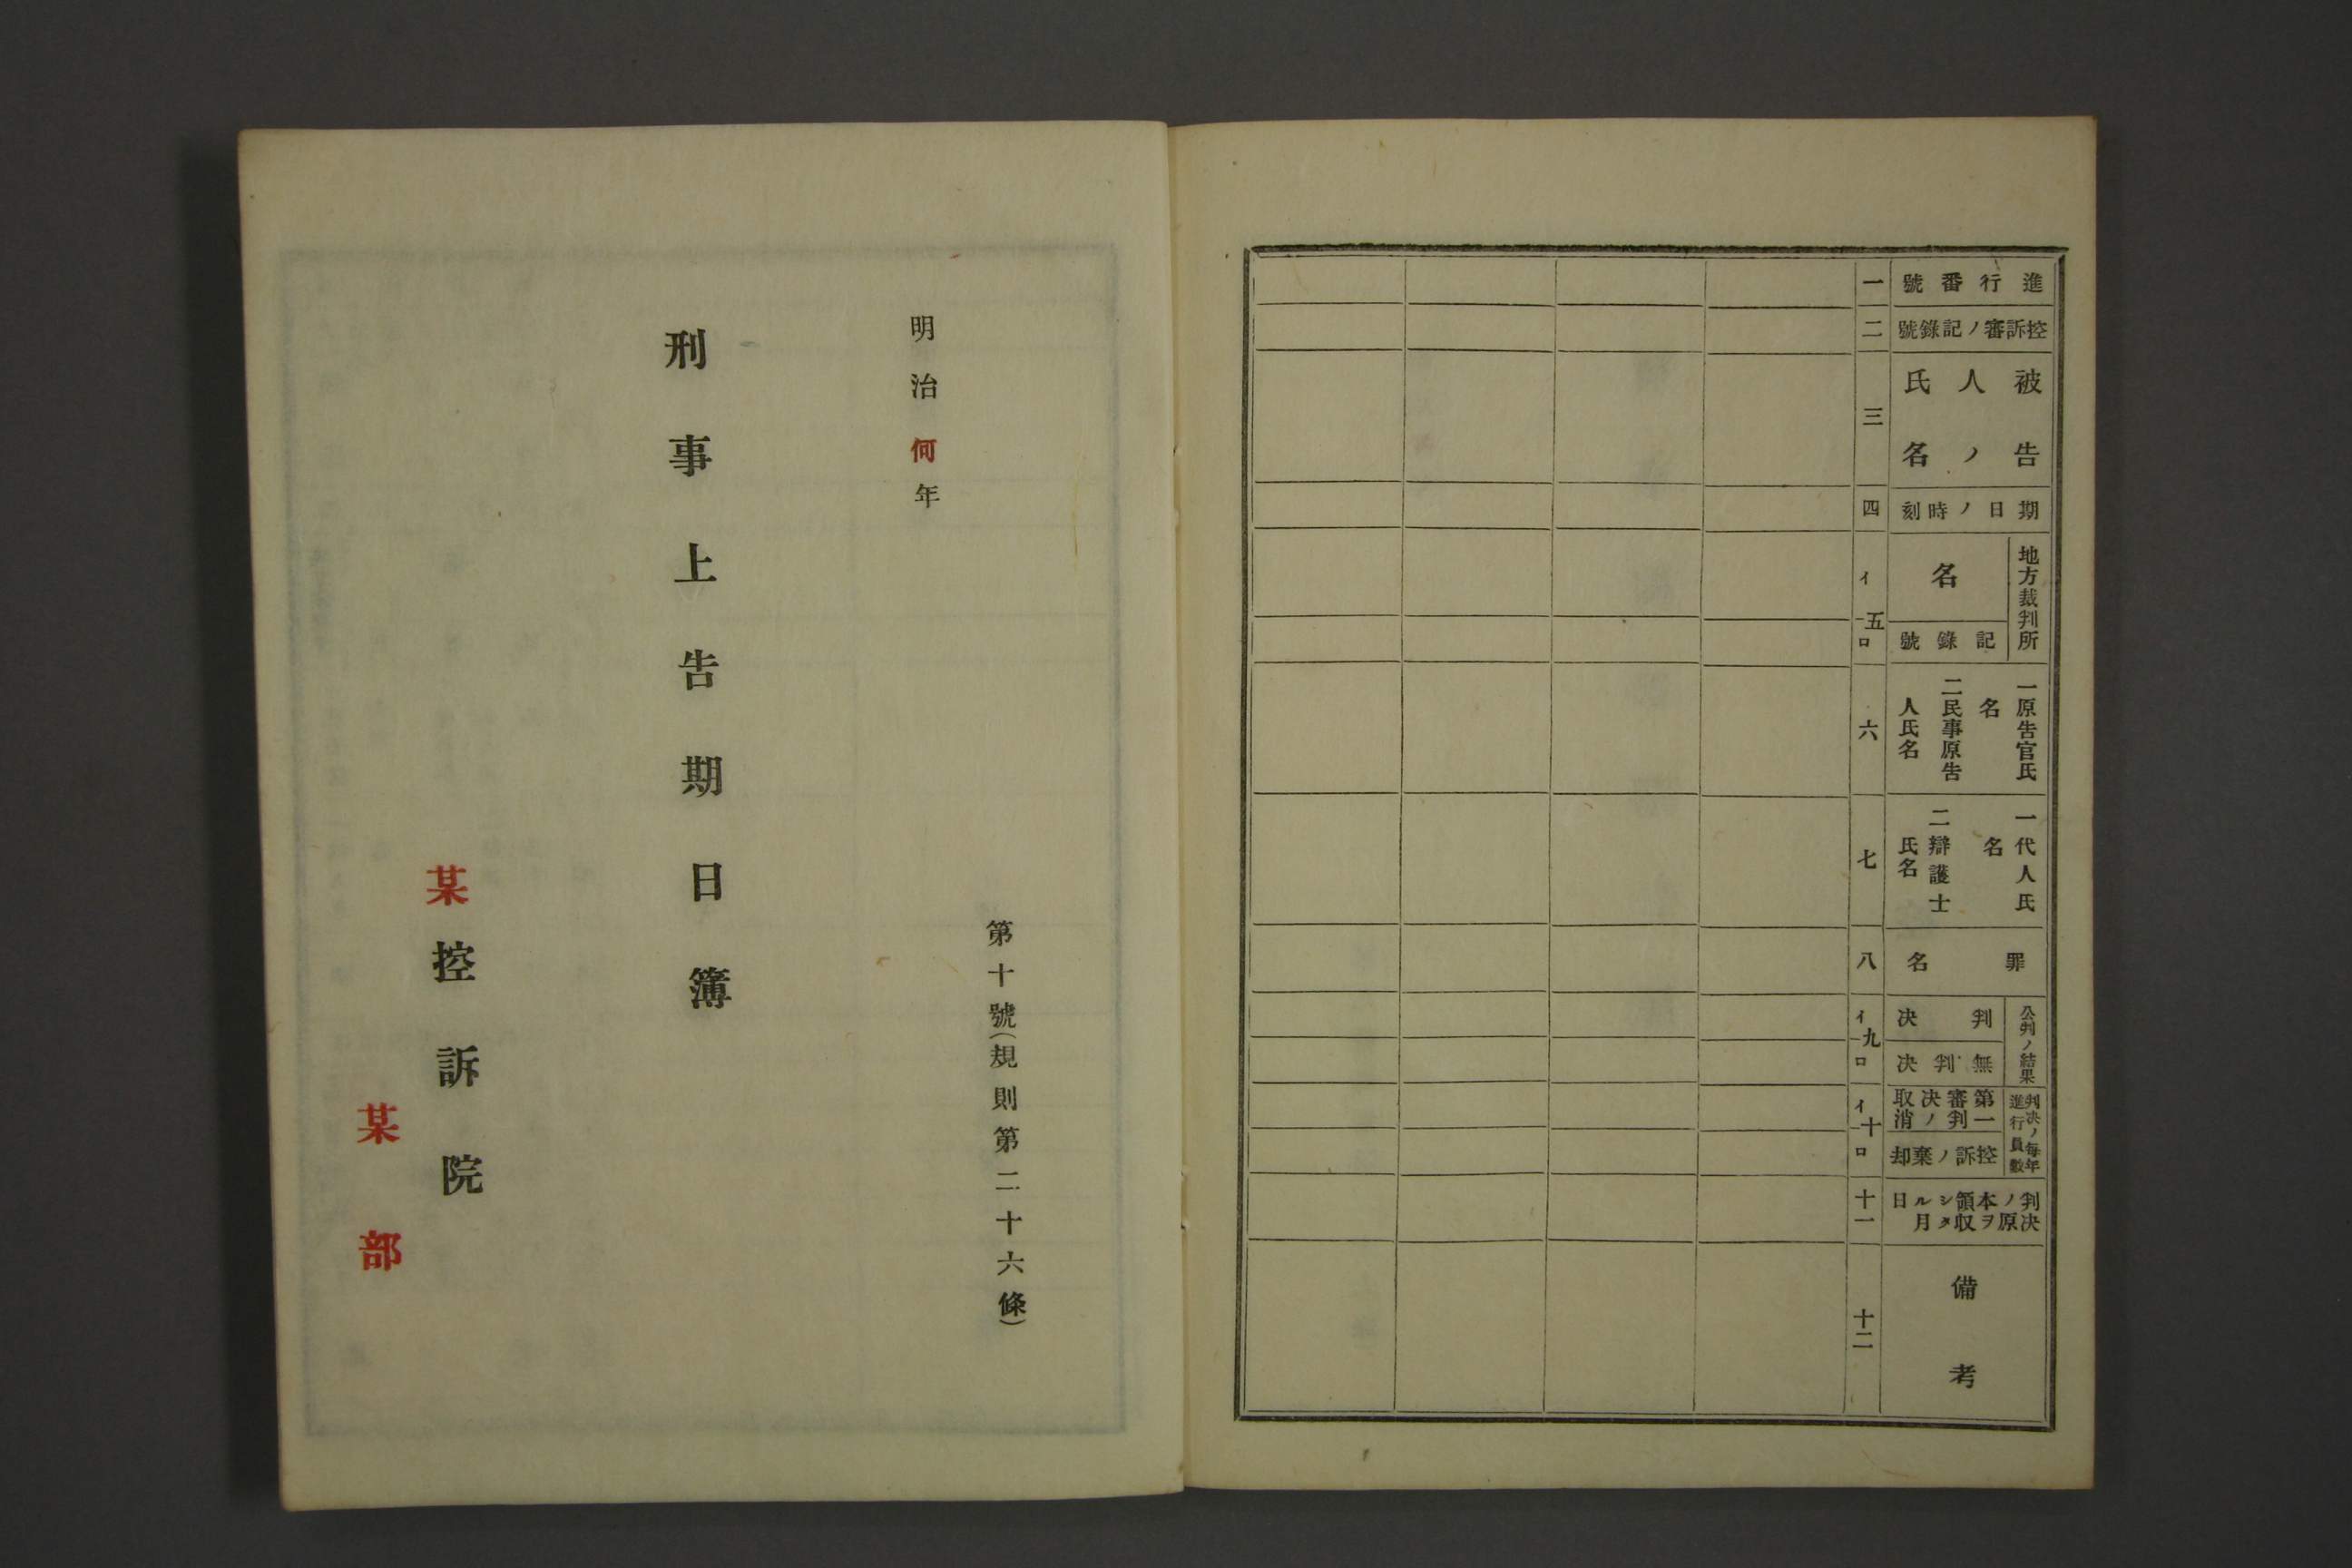 進行番號
一
控訴審ノ記錄號
二
被告人ノ氏名
三
期日ノ時刻
四
地方裁判所
名
記錄號
五
イ
ロ
一原告官氏名
二民事原告人氏名
六
一代人氏名
二辯護士氏名
七
罪名
八
公判ノ結果
判决
無判决
九
イ
ロ
判决ノ每年進行員數
第一審判决ノ取消
控訴ノ棄却
十
イ
ロ
判决ノ原本ヲ領収シタル月日
十一
備考
十二
第十號(規則第二十六條)
明治何年
刑事上告期日簿
某控訴院
某部